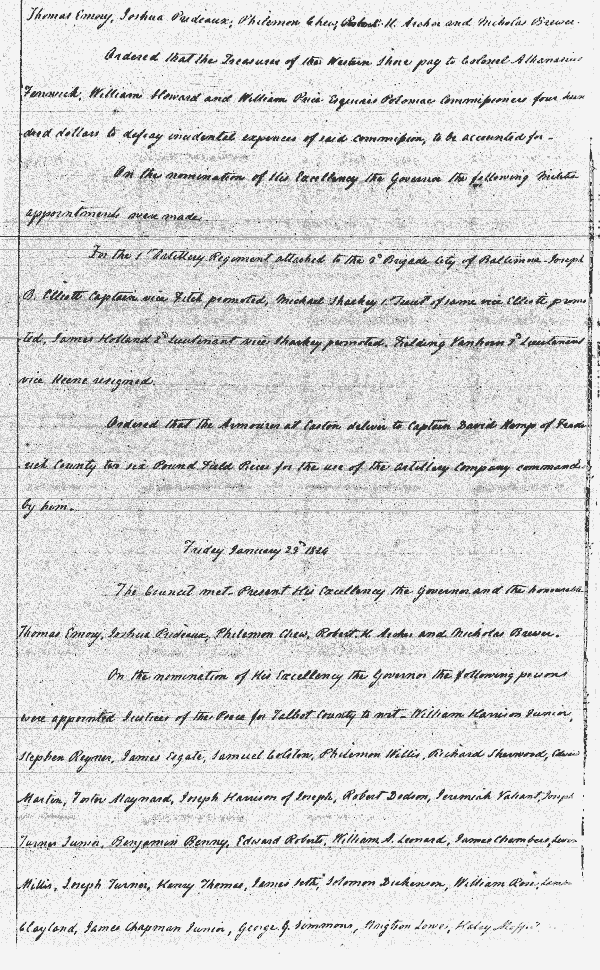 Thomas Emory, Joshua Prideaux, Philemon Chew, Robert H. Archer and Nicholas Brewer.
Ordered that the Treasurer of the Western Shore pay to Colonel Athanasius
Fenwick, William Howard and William Price Esquires Potomac Commissioners four hun
dred dollars to defray incidental expences of said commission, to be accounted for.
On the nomination of His Excellency the Governor the following Militia
appointments were made.
For the 1st Artillery Regiment attached to the 3d Brigade City of Baltimore Joseph
B. Elliott Captain vice Fitch promoted, Michael Sharkey 1st Lieut. of same vice Elliott promo
ted, James Holland 2d Lieutenant vice Sharkey promoted. Fielding Vanhorn 3d Lieutenant
vice Keene resigned.
Ordered that the Armourer at Easton deliver to Captain David Kemp of Frede
rick County two six Pound Field Pieces for the use of the Artillery Company commanded
by him.
Friday January 23d 1824
The Council met. Present His Excellency the Governor and the honourable
Thomas Emory, Joshua Prideaux, Philemon Chew, Robert H Archer and Nicholas Brewer.
On the nomination of His Excellency the Governor the following persons
were appointed Justices of the Peace for Talbot County to wit William Harrison Junior,
Stephen Reyner, James Segate, Samuel Colston, Philemon Willis, Richard Sherwood,
Martin, Foster Maynard, Joseph Harrison of Joseph, Robert Dodson, Jeremiah Valiant, Joseph
Turner Junior, Benjamin Benny, Edward Roberts, William A. Leonard, James Chambers,
Millis, Joseph Turner, Henry Thomas, James Seth, Solomon Dickenson, William Rose,
Clayland, James Chapman Junior, George G. Simmons, Lowe,